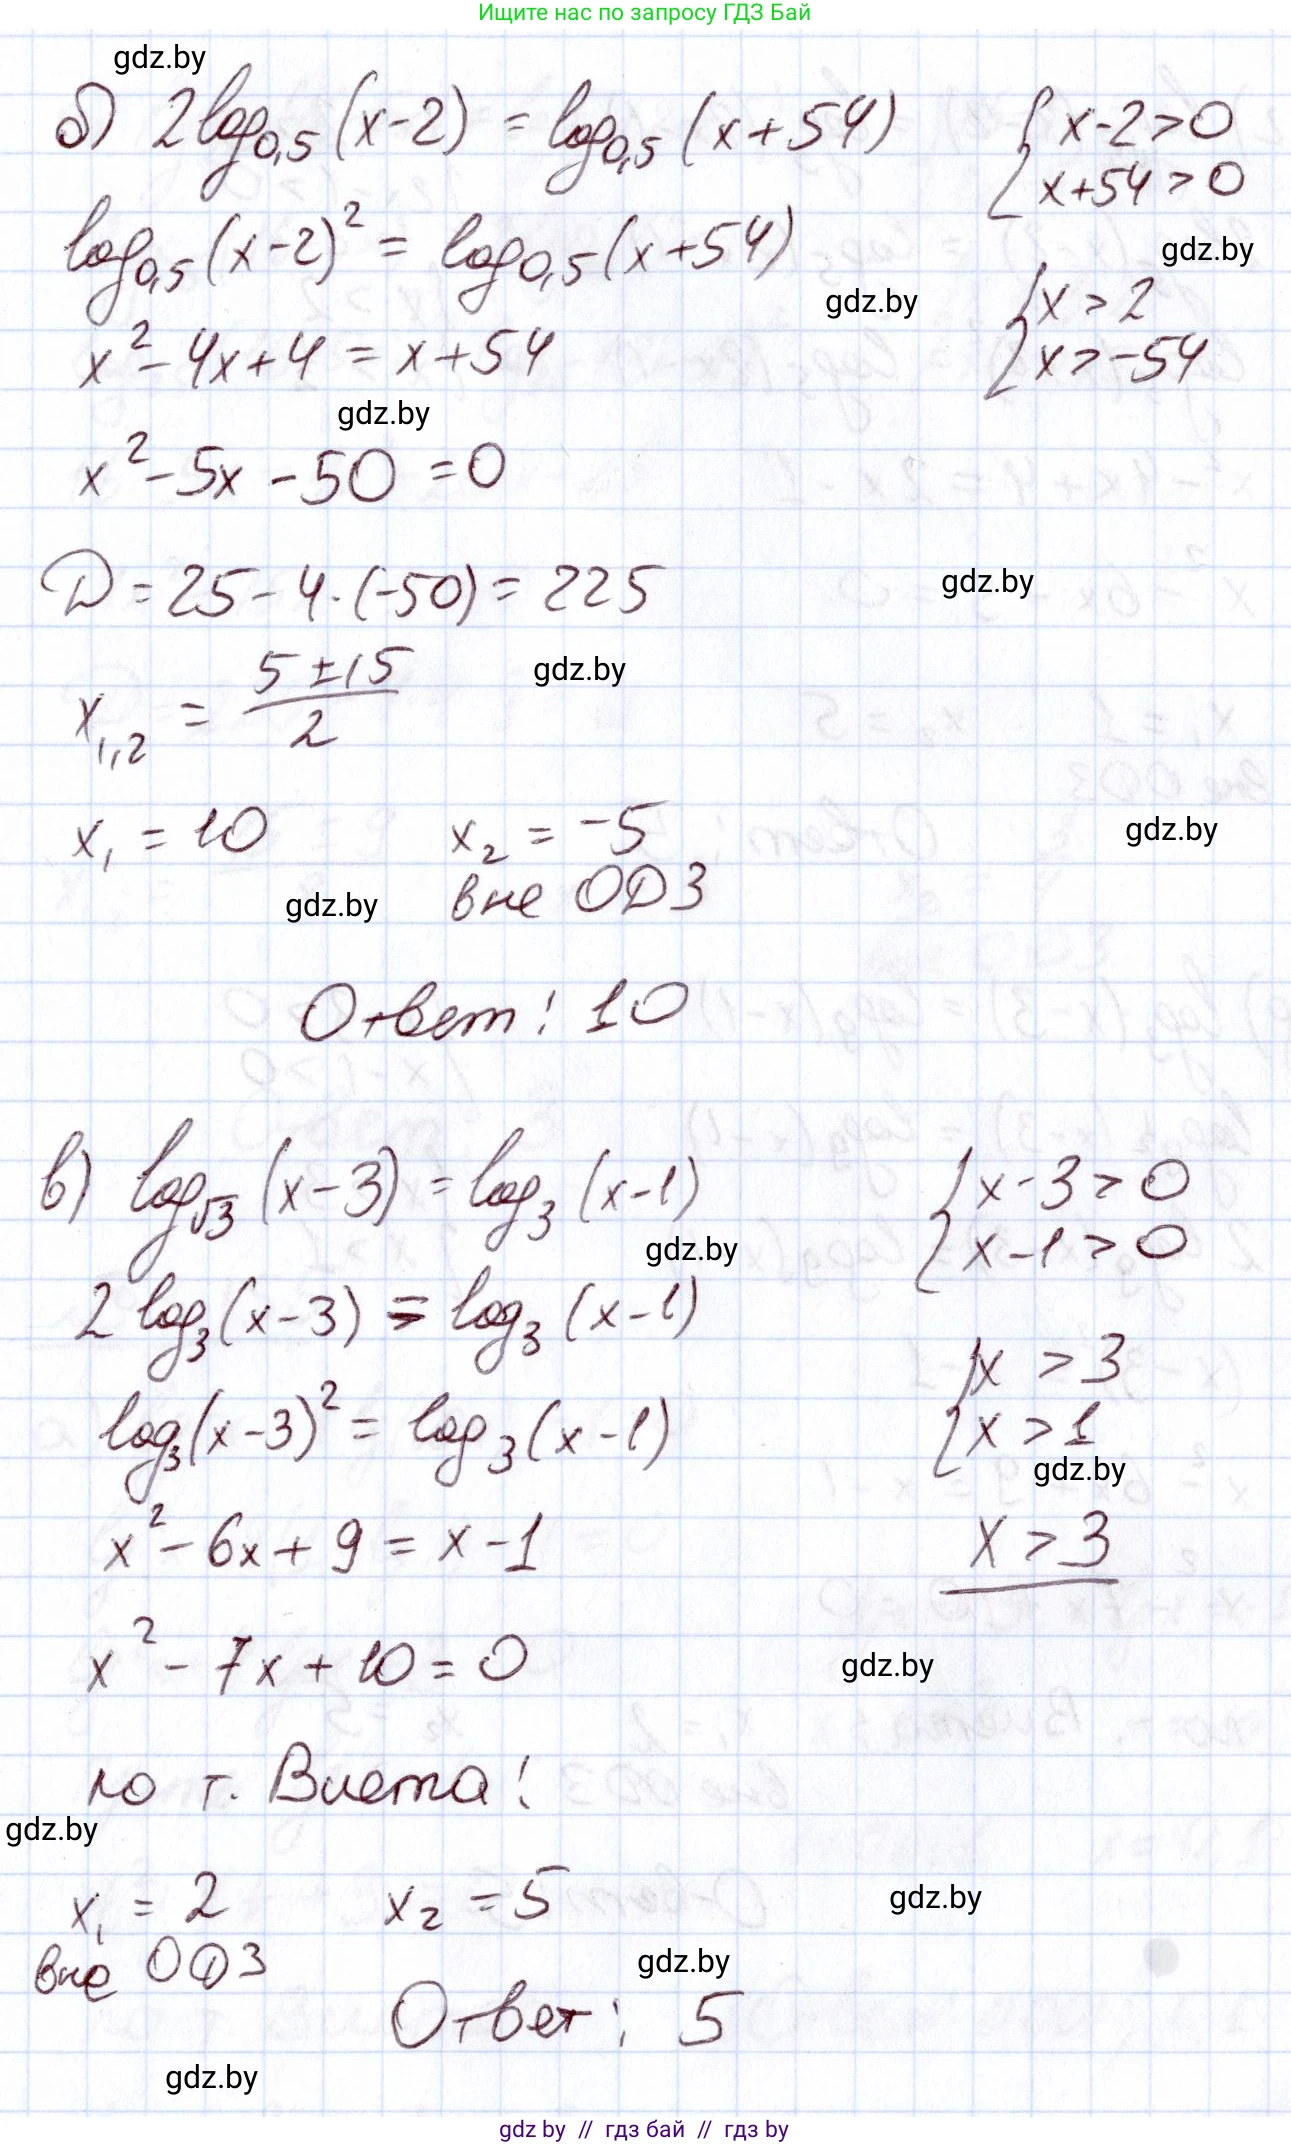 Ищите нас по запросу ГДЗ Бай
gdz.by
б) 2log₀,₅(x-2) = log₀,₅(x+54) { x-2>0
x+54>0
log₀,₅(x-2)² = log₀,₅(x+54)
gdz.by
gdz.by
{ x > 2
x > -54
x² - 4x + 4 = x + 54
gdz.by
x² - 5x - 50 = 0
D = 25 - 4·(-50) = 225
gdz.by
x₁,₂ = (5 ± 15)/2
gdz.by
x₁ = 10 x₂ = -5
gdz.by
вне ОДЗ
gdz.by
Ответ: 10
в) log√3(x-3) = log₃(x-1) { x-3>0
x-1>0
gdz.by
2log₃(x-3) = log₃(x-1)
{ x > 3
x > 1
log₃(x-3)² = log₃(x-1)
gdz.by
x² - 6x + 9 = x - 1
x > 3
x² - 7x + 10 = 0
gdz.by
по т. Виета:
gdz.by
x₁ = 2 x₂ = 5
gdz.by
вне ОДЗ
gdz.by
Ответ: 5
gdz.by
gdz by // гдз бай // gdz by